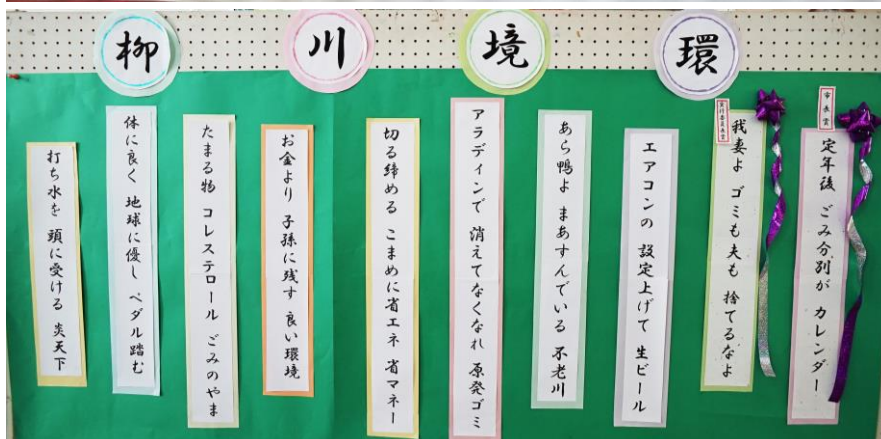 環境川柳
市長賞
定年後 ごみ分別が カレンダー
実行委員長賞
我妻よ ゴミも夫も 捨てるなよ
エアコンの 設定上げて 生ビール
あら鴨よ まあすんでいる 不老川
アラディンで 消えてなくなれ 原発ゴミ
切る締める こまめに省エネ 省マネー
お金より 子孫に残す 良い環境
たまる物 コレステロール ごみのやま
体に良く 地球に優し ペダル踏む
打ち水を 頭に受ける 炎天下